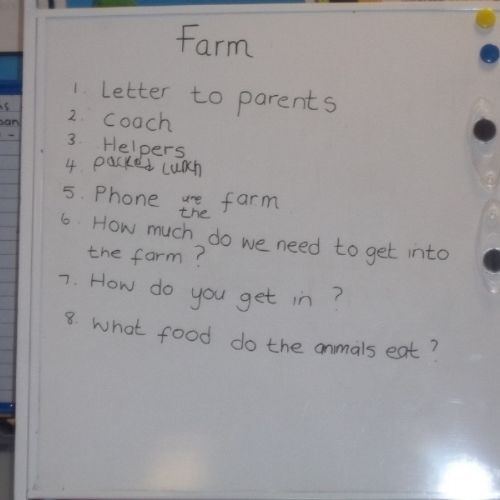 Farm
1. Letter to parents
2. Coach
3. Helpers
4. packed lunch
5. Phone the farm
6. How much do we need to get into
the farm?
7. How do you get in?
8. What food do the animals eat?